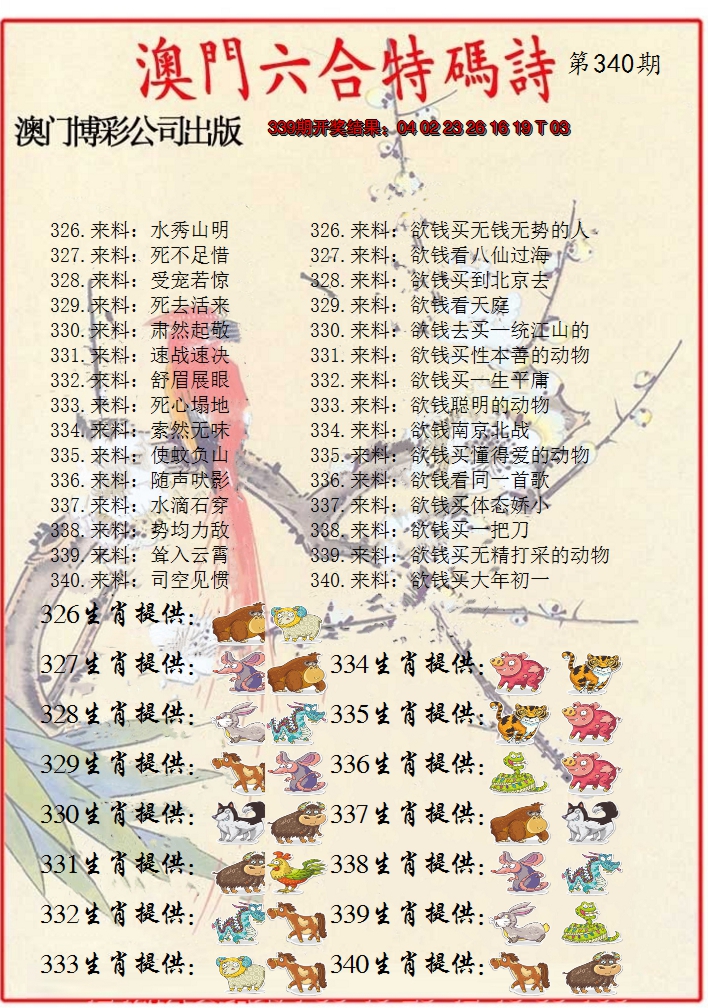 澳門六合特碼詩 第340期
澳门博彩公司出版 339期开奖结果：04 02 23 26 16 19 T 03
326.来料：水秀山明 326.来料：欲钱买无钱无势的人
327.来料：死不足惜 327.来料：欲钱看八仙过海
328.来料：受宠若惊 328.来料：欲钱买到北京去
329.来料：死去活来 329.来料：欲钱看天庭
330.来料：肃然起敬 330.来料：欲钱去买一统江山的
331.来料：速战速决 331.来料：欲钱买性本善的动物
332.来料：舒眉展眼 332.来料：欲钱买一生平庸
333.来料：死心塌地 333.来料：欲钱聪明的动物
334.来料：索然无味 334.来料：欲钱南京北战
335.来料：使蚊负山 335.来料：欲钱买懂得爱的动物
336.来料：随声吠影 336.来料：欲钱看同一首歌
337.来料：水滴石穿 337.来料：欲钱买体态娇小
338.来料：势均力敌 338.来料：欲钱买一把刀
339.来料：耸入云霄 339.来料：欲钱买无精打采的动物
340.来料：司空见惯 340.来料：欲钱买大年初一
326生肖提供：
327生肖提供： 334生肖提供：
328生肖提供： 335生肖提供：
329生肖提供： 336生肖提供：
330生肖提供： 337生肖提供：
331生肖提供： 338生肖提供：
332生肖提供： 339生肖提供：
333生肖提供： 340生肖提供：